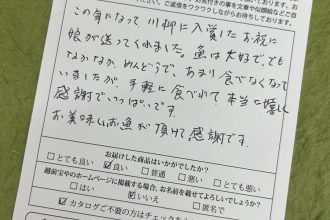 ご返信をワクワクしながらお待ちしております。
この年になって川柳に入賞したお祝に
娘が送ってくれました。魚は大好、でも
なかなか、めんどうで、あまり食べなくなって
いましたが、手軽に食べれて本当に嬉し
感謝でいっぱいです。
お美味しいお魚が頂けて感謝です。
お届けした商品はいかがでしたか?
□とても良い ☑良い □普通 □悪い □とても悪い
越前宝やのホームページに掲載する場合、お名前を載せてよろしいでしょうか?
□はい ☑いいえ □匿名で
☑カタログご不要の方はチェックを